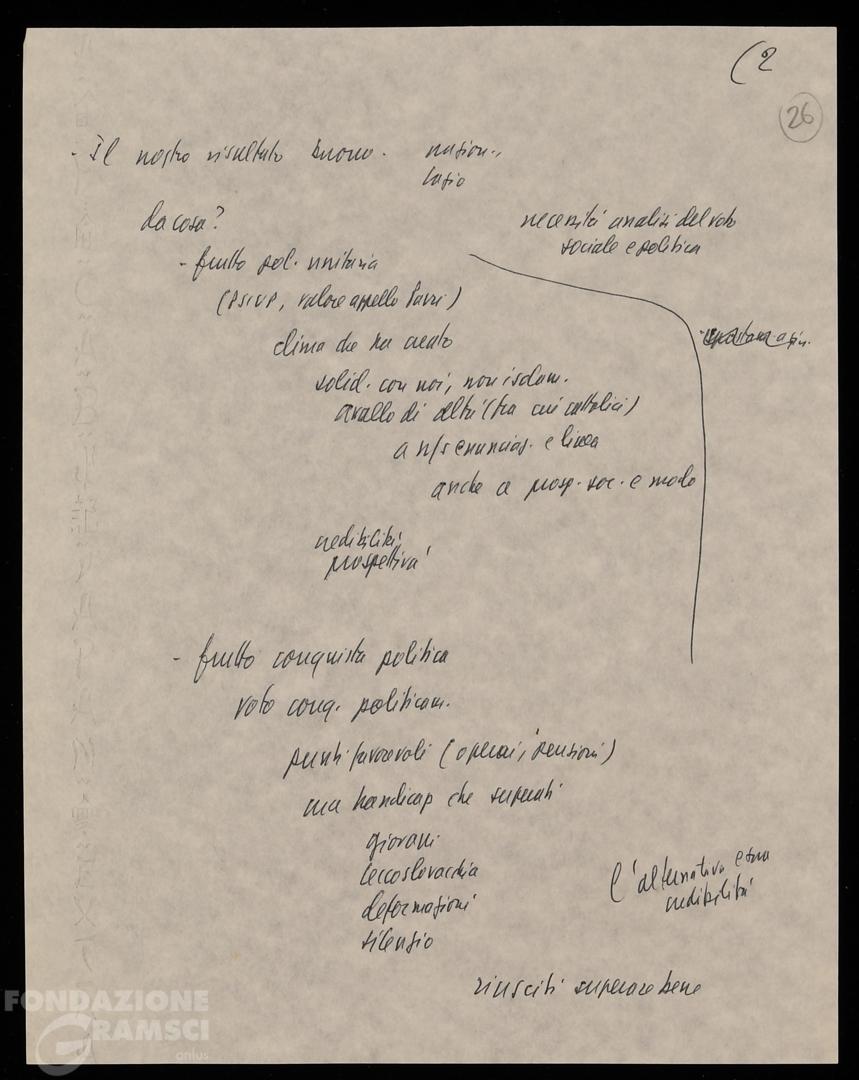 (2
26
- Il nostro risultato buono. nazion.,
Lazio
da cosa?
necessità analisi del voto
sociale e politica
- frutto pol. unitaria
(PSIUP, valore appello Parri)
clima che ha creato
solid. con noi, non isolam.
avallo di altri (tra cui cattolici)
a n/s enunciaz. e linea
anche a prosp. soc. e modo
credibilità
prospettiva
- frutto conquista politica
voto conq. politicam.
punti favorevoli (operai, pensioni)
ma handicap che superati
giovani
Cecoslovacchia
deformazioni
silenzio
l'alternativa e sua
credibilità
riusciti superare bene
FONDAZIONE
GRAMSCI
onlus